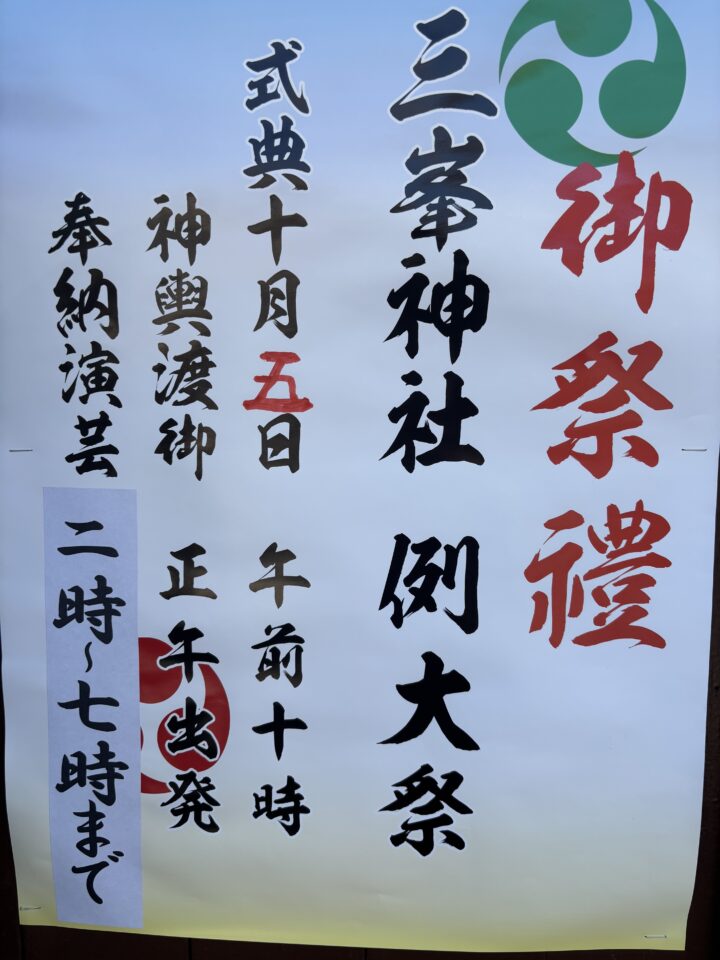 御祭禮
三峯神社 例大祭
式典十月五日 午前十時
神輿渡御 正午出発
奉納演芸 二時~七時まで